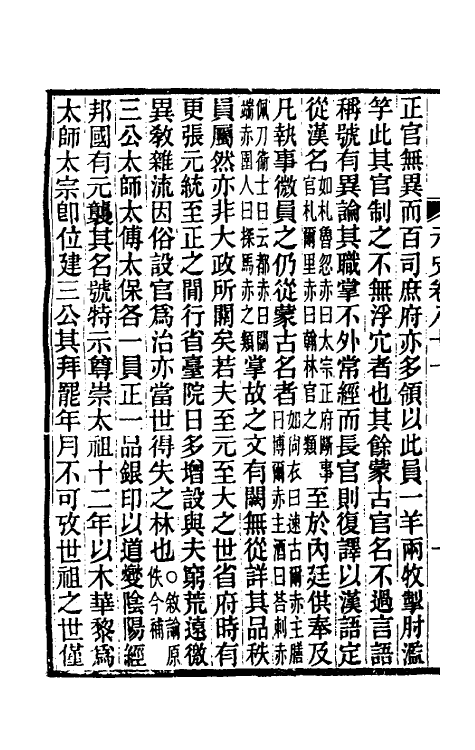 元史卷八十一
正官無異而百司庶府亦多領以此員一羊兩牧掣肘濫
竽此其官制之不無浮冗者也其餘蒙古官名不過言語
稱號有異論其職掌不外常經而長官則復譯以漢語定
從漢名如札魯忽赤曰大宗正府斷事官札爾里赤曰翰林官之類至於內廷供奉及
凡執事微員之仍從蒙古名者如尚衣曰速古爾赤主膳曰博爾赤主酒曰荅剌赤
佩刀衞士曰云都赤曰闊端赤圉人曰探馬赤之類掌故之文有闕無從詳其品秩
員屬然亦非大政所關矣若夫至元至大之世省府時有
更張元統至正之間行省臺院日多增設與夫窮荒遠徼
異敎雜流因俗設官爲治亦當世得失之林也○敘論原佚今補
三公太師太傅太保各一員正一品銀印以道變陰陽經
邦國有元襲其名號特示尊崇太祖十二年以木華黎爲
太師太宗卽位建三公其拜罷年月不可攷世祖之世僅